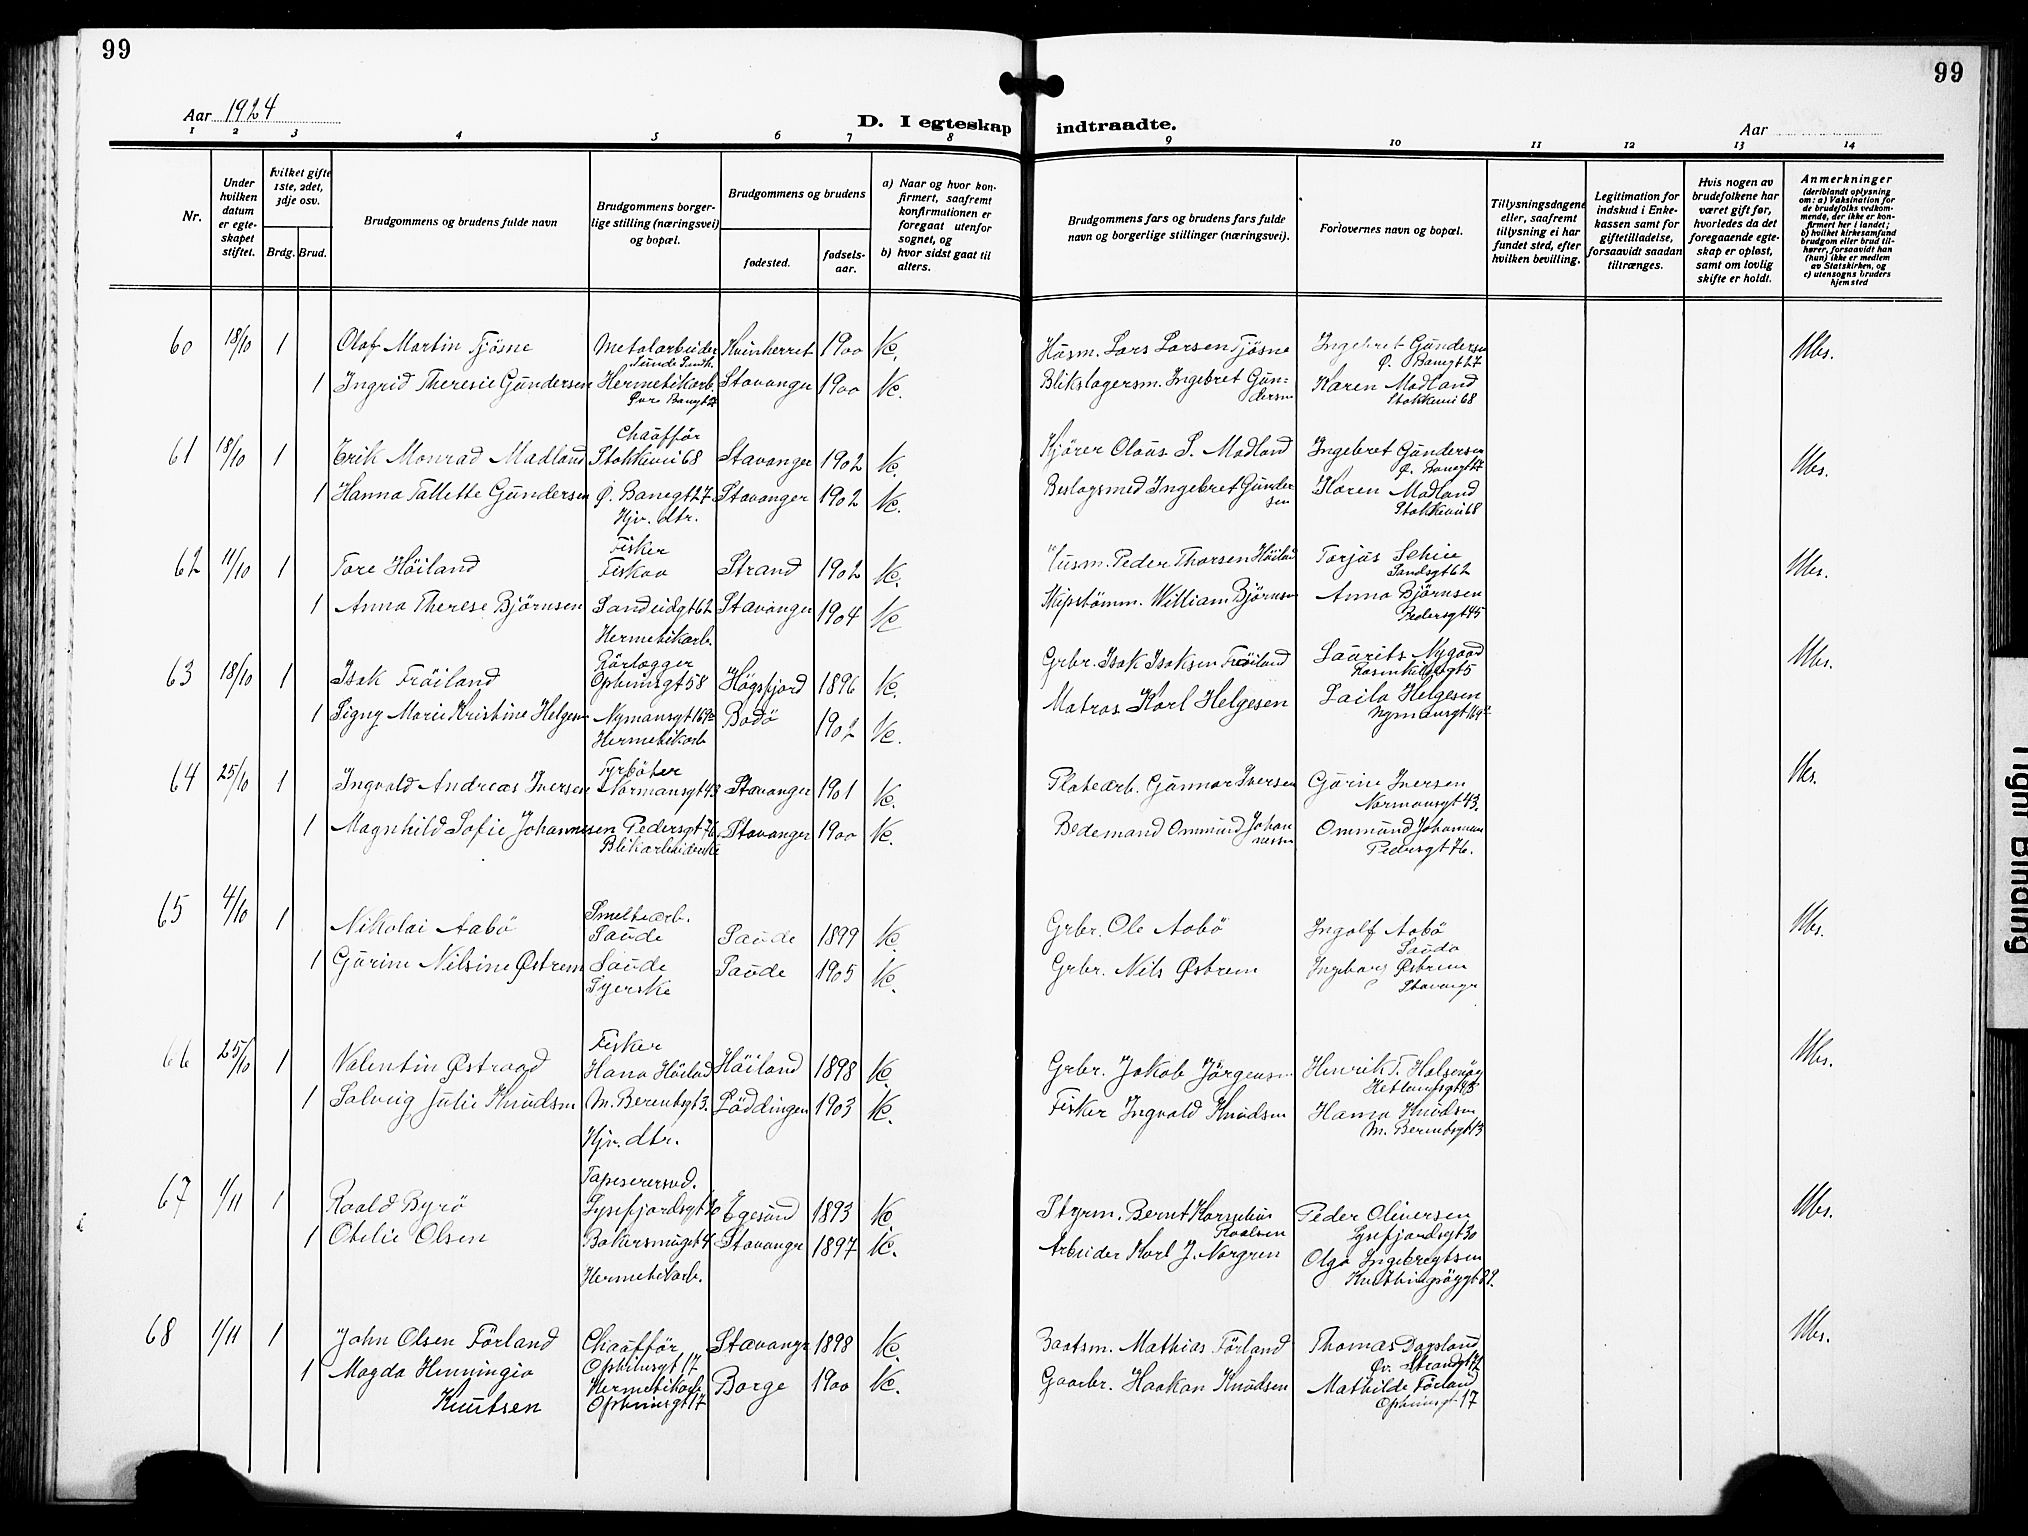 99
99
Aar 1924
D. I egteskap indtraadte.
Aar
1 2 3 4 5 6 7 8 9 10 11 12 13 14
Nr.
Under hvilken datum er egteskapet stiftet.
hvilket gifte 1ste, 2det, 3dje osv.
Brdg. Brud.
Brudgommens og brudens fulde navn
Brudgommens borgerlige stilling (næringsvei) og bopæl.
Brudgommens og brudens
fødested.
fødselsaar.
a) Naar og hvor konfirmert, saafremt konfirmationen er foregaat utenfor sognet, og
b) hvor sidst gaat til alters.
Brudgommens fars og brudens fars fulde navn og borgerlige stillinger (næringsvei).
Forlovernes navn og bopæl.
Tillysningsdagene eller, saafremt tillysning ei har fundet sted, efter hvilken bevilling.
Legitimation for indskud i Enkekassen samt for giftetilladelse, forsaavidt saadan tiltrænges.
Hvis nogen av brudefolkene har været gift før, hvorledes da det foregaaende egteskap er opløst, samt om lovlig skifte er holdt.
Anmerkninger (deriblandt oplysning om: a) Vaksination for de brudefolks vedkommende, der ikke er konfirmert her i landet; b) hvilket kirkesamfund brudgom eller brud tilhører, forsaavidt han (hun) ikke er medlem av Statskirken, og c) utensogns bruders hjemsted
60 18/10 1 Olaf Martin Tjøsne Metalarbeider Kvinherret 1900 Husm. Lars Larsen Tjøsne Ingebret Gundersen Ø. Banegt 27
1 Ingrid Theresie Gundersen Hermetikarb. Øvre Banegt 27 Stavanger 1900 Blikslagersm. Ingebret Gundersen Karen Madland Stokkevei 68
61 18/10 1 Erik Monrad Madland Chaufför Stokkevei 68 Stavanger 1902 Kjører Olaus S. Madland Ingebret Gundersen Ø. Banegt 27
1 Hanna Tallette Gundersen Ø. Banegt 27 Hjv. dtr. Stavanger 1902 Beslagsmed Ingebret Gundersen Karen Madland Stokkevei 68
62 11/10 1 Tore Höiland Fisker Fiskaa Strand 1902 Husm. Peder Thorsen Höiland Torjus Schie Sandsgt 62
1 Anna Therese Bjørnsen Sandeidgt 62 Hermetikarb. Stavanger 1904 Skipstømm. William Bjørnsen Anna Bjørnsen Pedersgt 45
63 18/10 1 Isak Fröiland Rörlægger Opheimsgt 58 Høgsfjord 1896 Grbr. Isak Isaksen Fröiland Laurits Nygaard Rosenkildegt 5
1 Signy Marie Kristine Helgesen Nymansgt 169 Hermetikarb Bodö 1902 Matros Karl Helgesen Laila Helgesen Nymansgt 169
64 25/10 1 Ingvald Andreas Iversen Fyrbøter Normansgt 43 Stavanger 1901 Platearb. Gunnar Iversen Gurine Iversen Normansgt 43.
1 Magnhild Sofie Johannesen Pedersgt 76 Blikarbeiderske Stavanger 1900 Bedemand Ommund Johannessen Ommund Johannesen Pedersgt 76.
65 4/10 1 Nikolai Aabö Smeltearb. Saude Saude 1899 Grbr. Ole Aabö Ingolf Aabö Sauda
1 Gurine Nilsine Østrem Saude Syerske Saude 1905 Grbr. Nils Østrem Østrem Stavanger
66 25/10 1 Valentin Østraad Fisker Hana Höiland Höiland 1898 Grbr. Jakob Jörgensen Henrik T. Halsenöy
1 Solveig Julie Knudsen M. Berentsgt 3. Hjv. dtr. Löddingen 1903 Fisker Ingvald Knudsen Hanna Knudsen M. Berentsgt 13
67 1/11 1 Roald Byrö Tapeserersvd. Lysefjordsgt Egesund 1893 Styrm. Bernt Kornelius Roalsen Peder Oliversen Lysefjordsgt 30
1 Otelie Olsen Bakersmuget 4 Hermetikarb. Stavanger 1897 Arbeider Karl J. Norgren Olga Ingebregtsen
68 1/11 1 John Olsen Förland Chaufför Opheimsgt 17 Stavanger 1898 Baatsm. Mathias Förland Thomas Dagsland Øv. Strandgt
1 Magda Henningia Knutsen Hermetikarb Opheimsgt 17 Borge 1900 Gaarbr. Haakan Knudsen Mathilde Förland Opheimsgt 17
Tight Binding